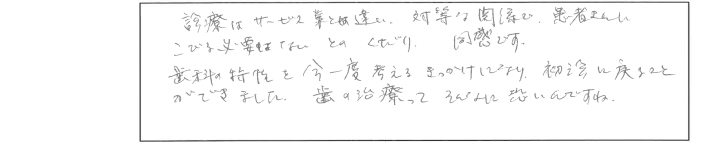 診療はサービス業とは違い、対等な関係で、患者さんに
こびる必要はない とのくだり、同感です。
歯科の特性を今一度考えるきっかけになり、初診に戻ること
ができました。歯の治療って そんなに恐いんですね。